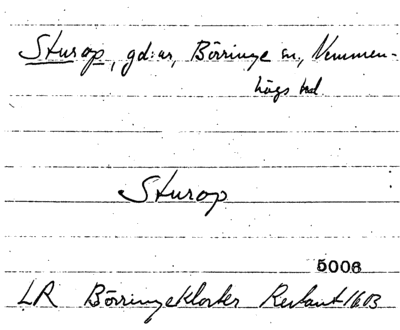 Sturop, gd:ar, Börringe sn, Vemmen-
högs hd
Sturop
5006
LR Börringekloster Restant 1603